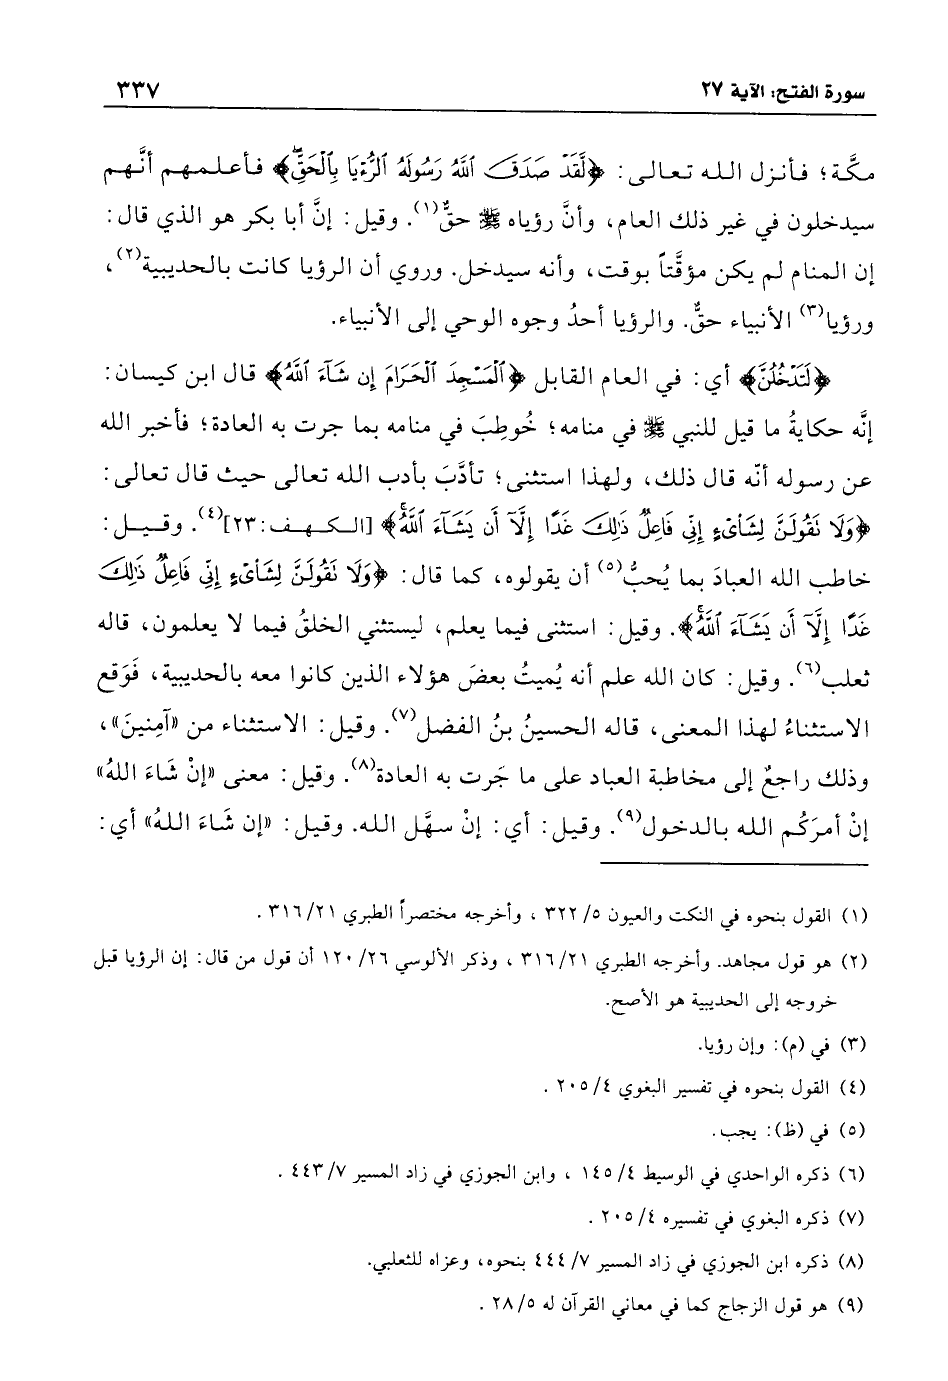 سورة الفتح: الآية ٢٧
٣٣٧
مكَّة؛ فأنزل الله تعالى: ﴿لَّقَدْ صَدَقَ ٱللَّهُ رَسُولَهُ ٱلرُّءْيَا بِٱلْحَقِّۖ﴾ فأعلمهم أنَّهم
سيدخلون في غير ذلك العام، وأنَّ رؤياه ﷺ حقٌّ(١). وقيل: إنَّ أبا بكر هو الذي قال:
إن المنام لم يكن مؤقَّتاً بوقت، وأنه سيدخل. وروي أن الرؤيا كانت بالحديبية(٢)،
ورؤيا(٣) الأنبياء حقٌّ. والرؤيا أحدُ وجوه الوحي إلى الأنبياء.
﴿لَتَدْخُلُنَّ﴾ أي: في العام القابل ﴿ٱلْمَسْجِدَ ٱلْحَرَامَ إِن شَآءَ ٱللَّهُ﴾ قال ابن كيسان:
إنَّه حكايةُ ما قيل للنبي ﷺ في منامه؛ خُوطِبَ في منامه بما جرت به العادة؛ فأخبر الله
عن رسوله أنّه قال ذلك، ولهذا استثنى؛ تأدَّبَ بأدب الله تعالى حيث قال تعالى:
﴿وَلَا تَقُولَنَّ لِشَا۟ىْءٍ إِنِّى فَاعِلٌ ذَٰلِكَ غَدًا إِلَّآ أَن يَشَآءَ ٱللَّهُۚ﴾ [الكهف: ٢٣](٤). وقيل:
خاطب الله العبادَ بما يُحبُّ(٥) أن يقولوه، كما قال: ﴿وَلَا تَقُولَنَّ لِشَا۟ىْءٍ إِنِّى فَاعِلٌ ذَٰلِكَ
غَدًا إِلَّآ أَن يَشَآءَ ٱللَّهُۚ﴾. وقيل: استثنى فيما يعلم، ليستثني الخلقُ فيما لا يعلمون، قاله
ثعلب(٦). وقيل: كان الله علم أنه يُميتُ بعضَ هؤلاء الذين كانوا معه بالحديبية، فَوَقع
الاستثناءُ لهذا المعنى، قاله الحسينُ بنُ الفضل(٧). وقيل: الاستثناء من «آمِنينَ»،
وذلك راجعٌ إلى مخاطبة العباد على ما جَرت به العادة(٨). وقيل: معنى «إنْ شَاءَ اللهُ»
إنْ أمرَكُم الله بالدخول(٩). وقيل: أي: إنْ سهَّل الله. وقيل: «إن شَاءَ اللهُ» أي:
(١) القول بنحوه في النكت والعيون ٥/ ٣٢٢ ، وأخرجه مختصراً الطبري ٢١/ ٣١٦ .
(٢) هو قول مجاهد. وأخرجه الطبري ٢١/ ٣١٦ ، وذكر الألوسي ٢٦/ ١٢٠ أن قول من قال: إن الرؤيا قبل
خروجه إلى الحديبية هو الأصح.
(٣) في (م): وإن رؤيا.
(٤) القول بنحوه في تفسير البغوي ٤/ ٢٠٥ .
(٥) في (ظ): يجب.
(٦) ذكره الواحدي في الوسيط ٤/ ١٤٥ ، وابن الجوزي في زاد المسير ٧/ ٤٤٣ .
(٧) ذكره البغوي في تفسيره ٤/ ٢٠٥ .
(٨) ذكره ابن الجوزي في زاد المسير ٧/ ٤٤٤ بنحوه، وعزاه للثعلبي.
(٩) هو قول الزجاج كما في معاني القرآن له ٥/ ٢٨ .